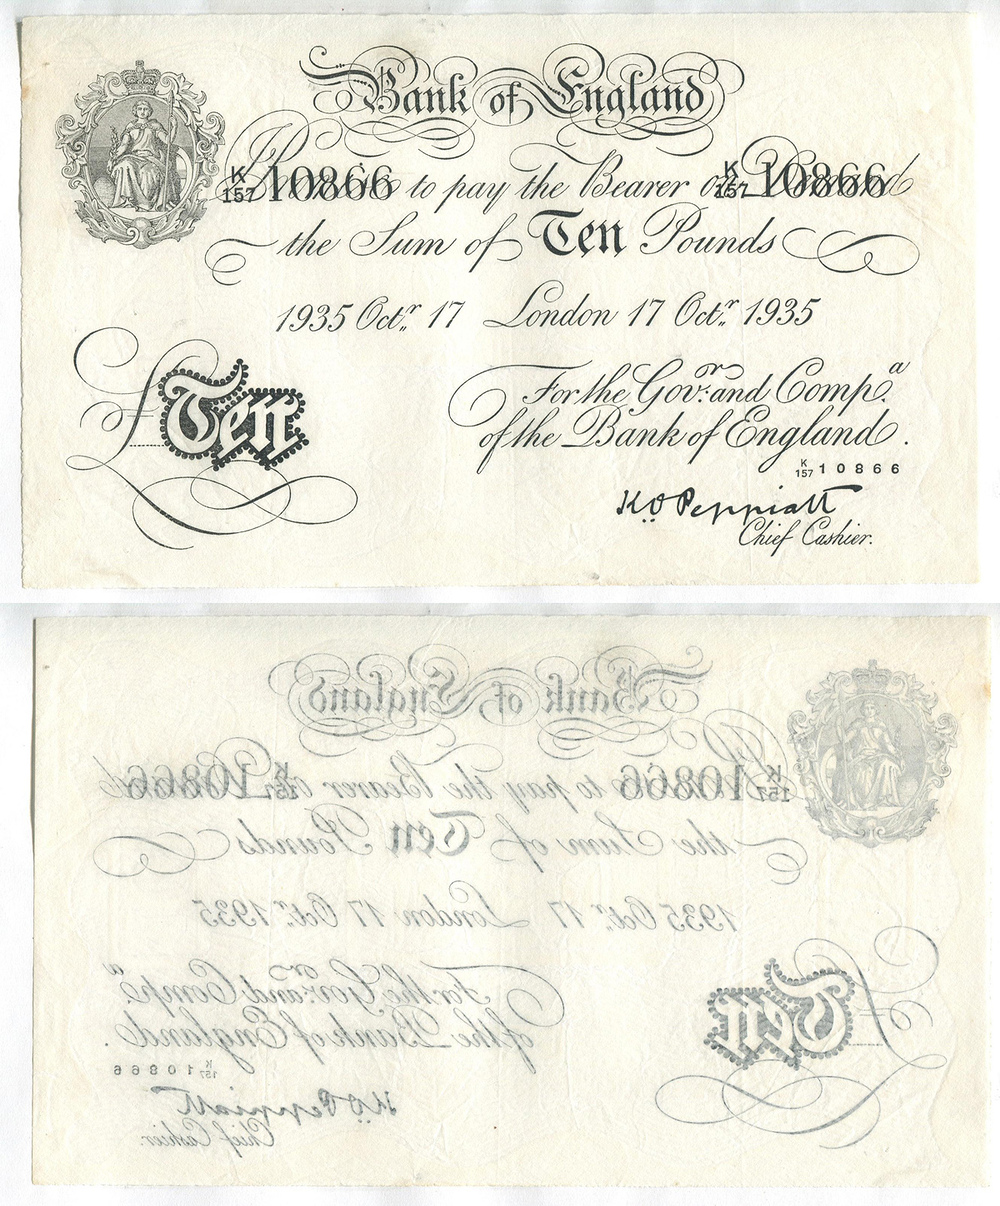 Bank of England
K 157 10866 to pay the Bearer on K 157 10866
the Sum of Ten Pounds
1935 Octr. 17 London 17 Octr. 1935
£Ten
For the Govr. and Compa.
of the Bank of England.
K 157 10866
K.O. Peppiatt
Chief Cashier.